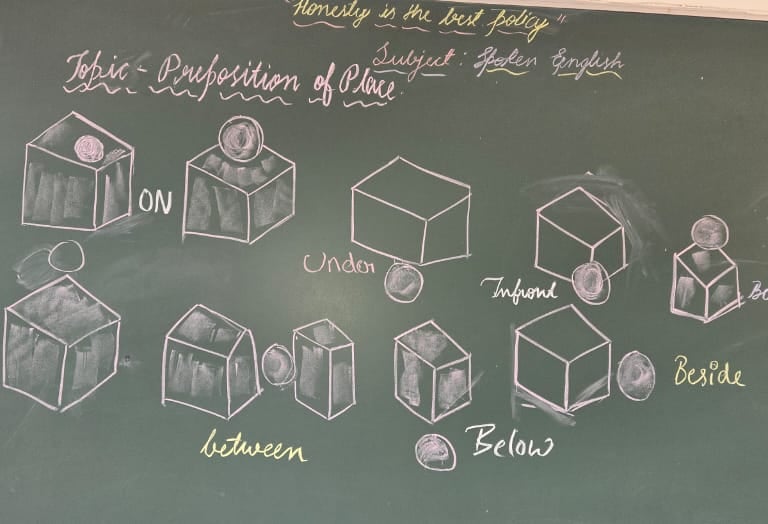 "Honesty is the best policy"
Subject: Spoken English
Topic - Preposition of Place
ON
Under
Infront
between
Below
Beside